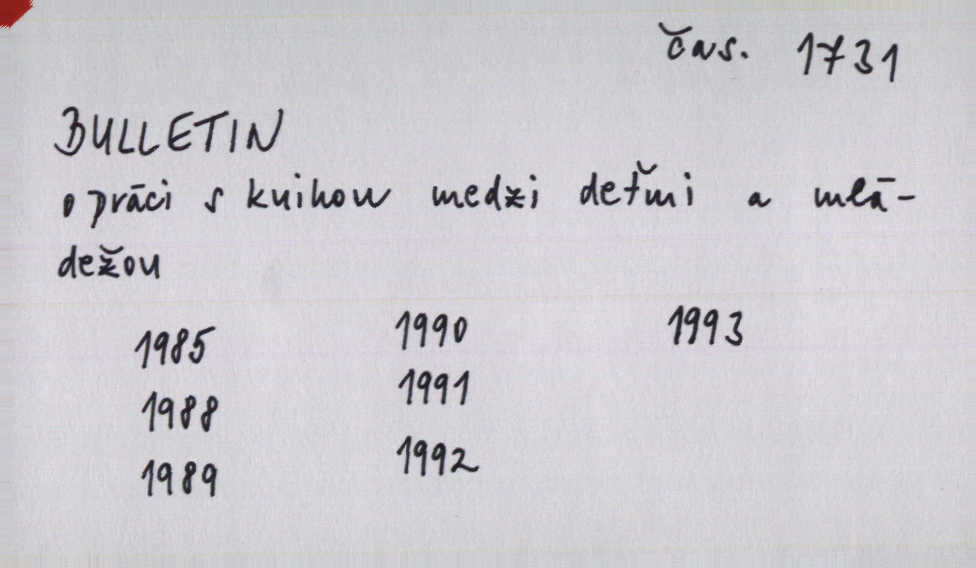 čas. 1731
BULLETIN
o práci s knihou medzi deťmi a mlá-
dežou
1985 1990 1993
1988 1991
1989 1992